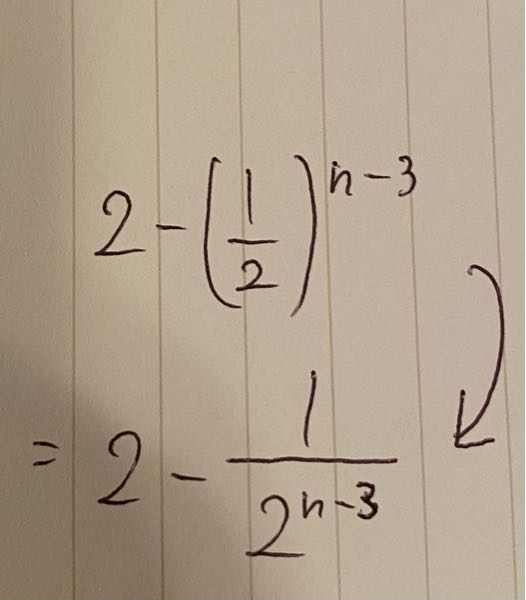 2 - (1/2)^{n-3}
= 2 - 1/2^{n-3}